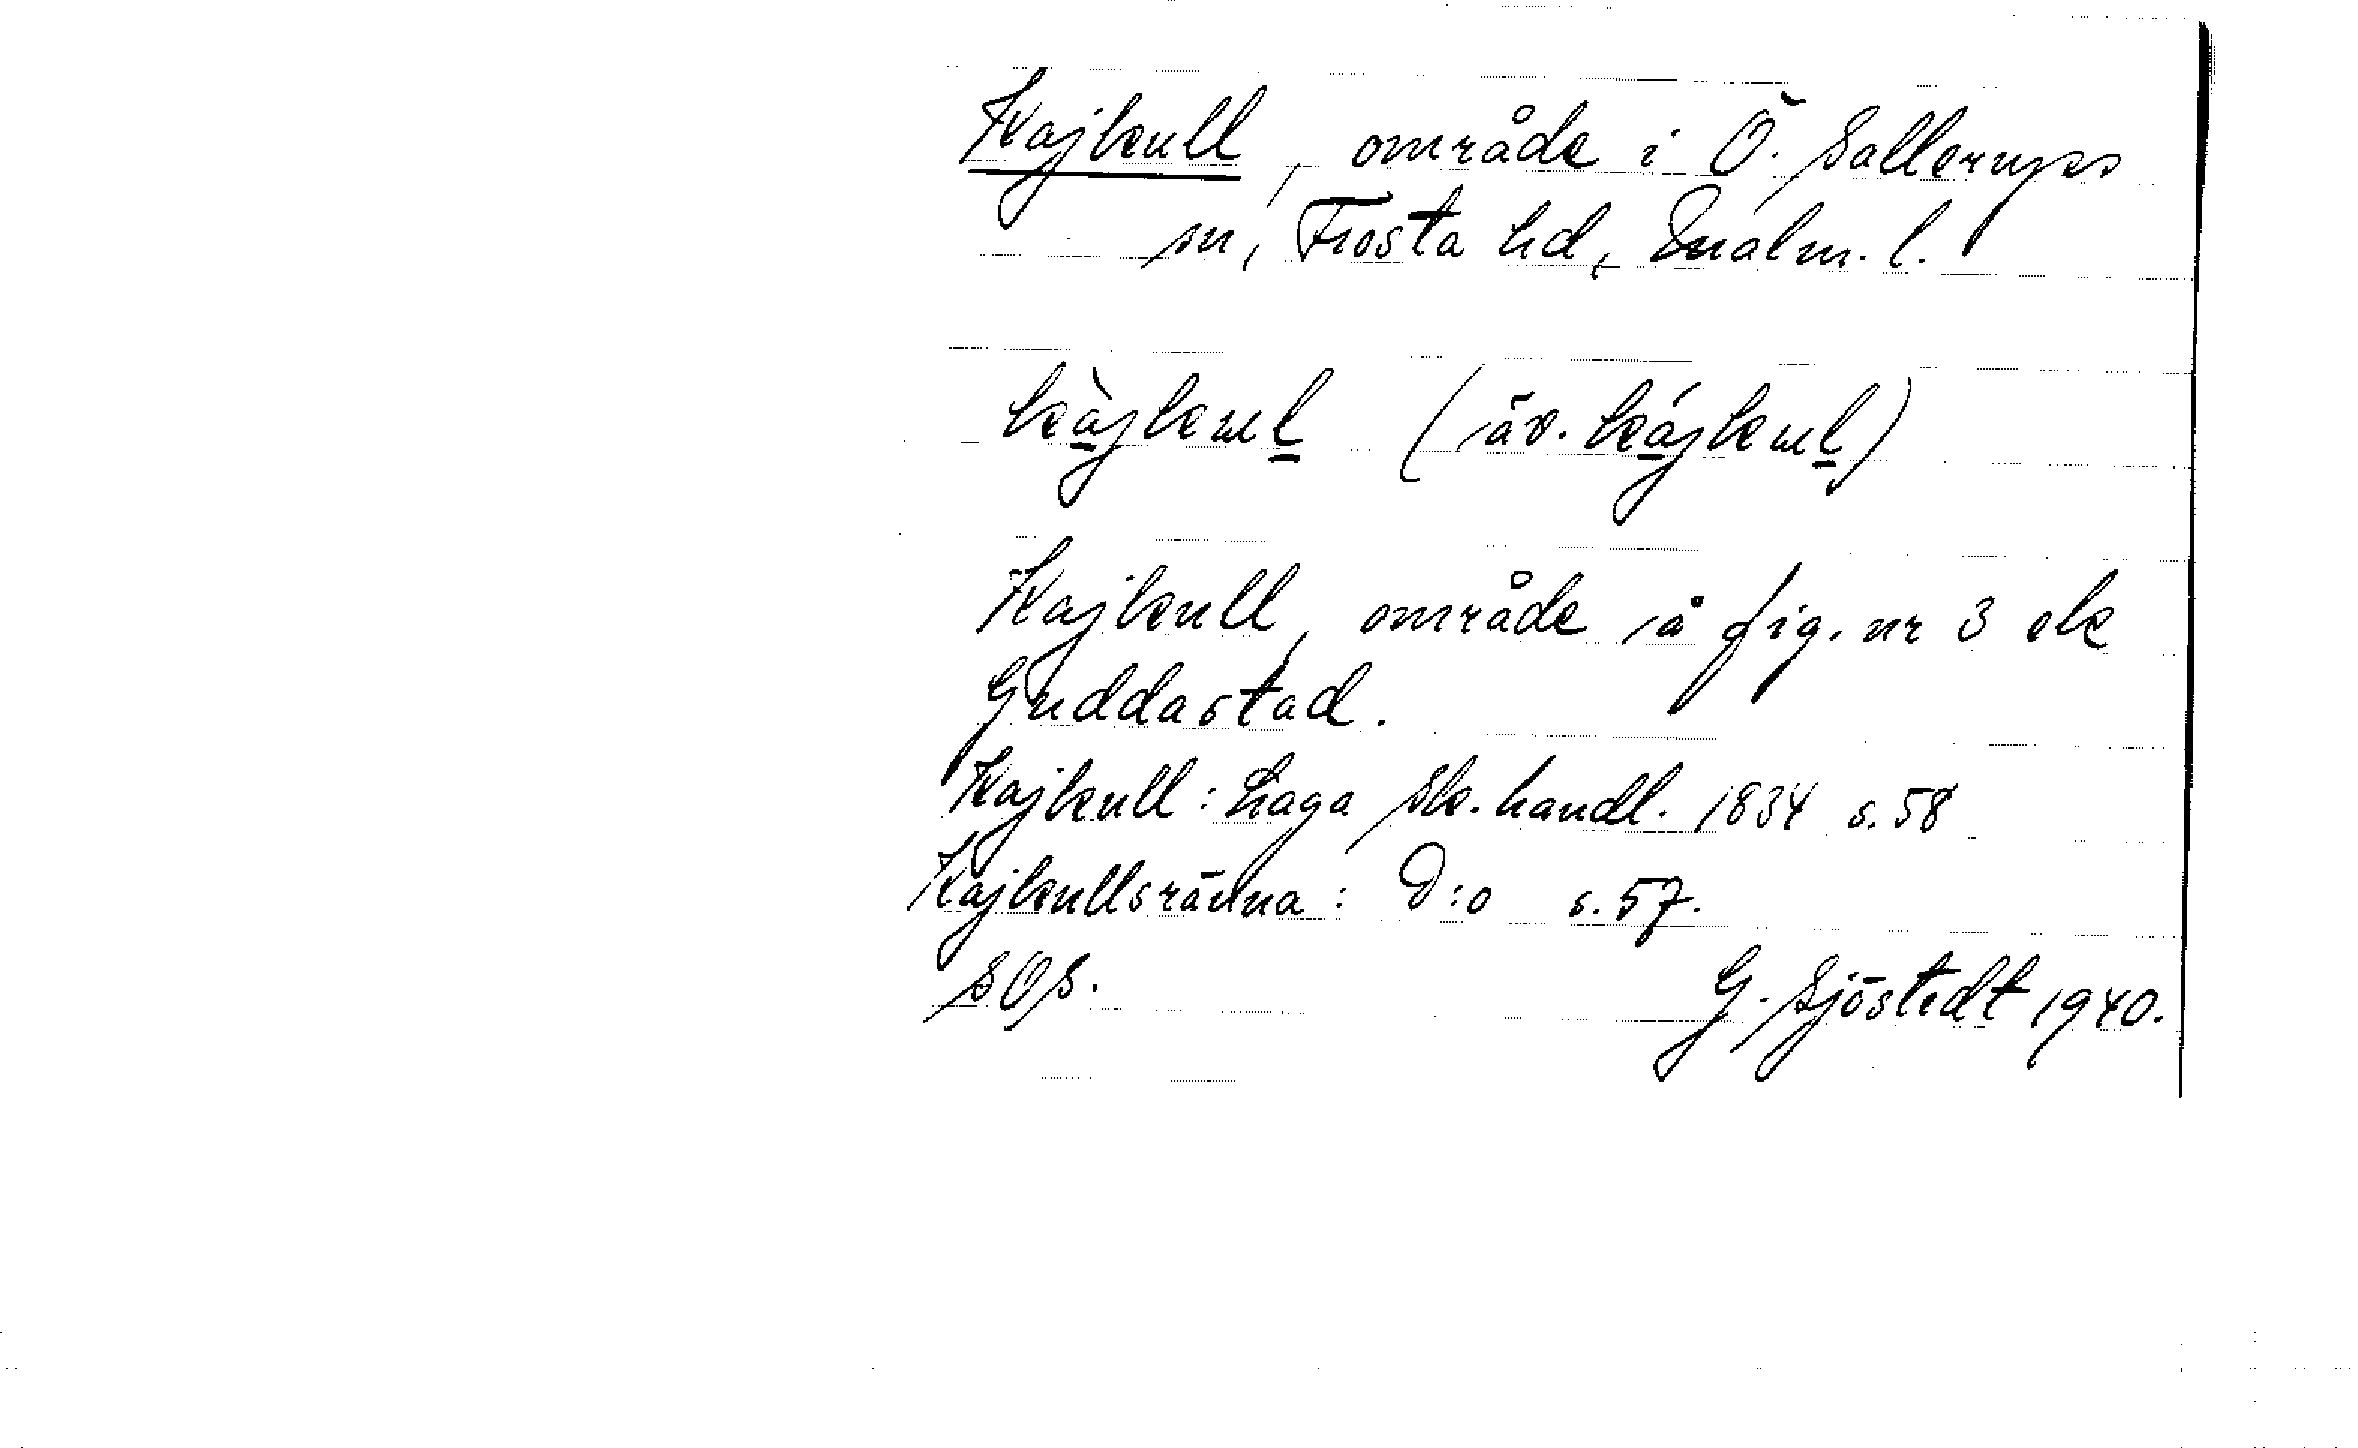 Kajkull, område i Ö. Sallerups
sn, Frosta hd, Malm. l.
kàjkul (äv. kájkul)
Kajkull, område å fig. nr 3 ek
Guddastad.
Kajkull: Laga sk. handl. 1834 s. 58
Kajkullsränna: D:o s. 57.
SOS.
G. Sjöstedt 1940.